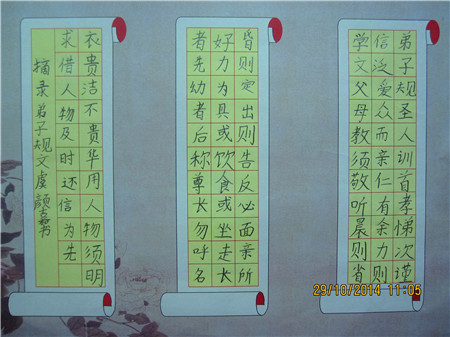 弟子规圣人训首孝悌次谨
信泛爱众而亲仁有余力则
学文父母教须敬听晨则省
昏则定出则告反必面亲所
好力为具或饮食或坐走长
者先幼者后称尊长勿呼名
衣贵洁不贵华用人物须明
求借人物及时还信为先
摘录弟子规文虞 嘉书
29/10/2014 11:05